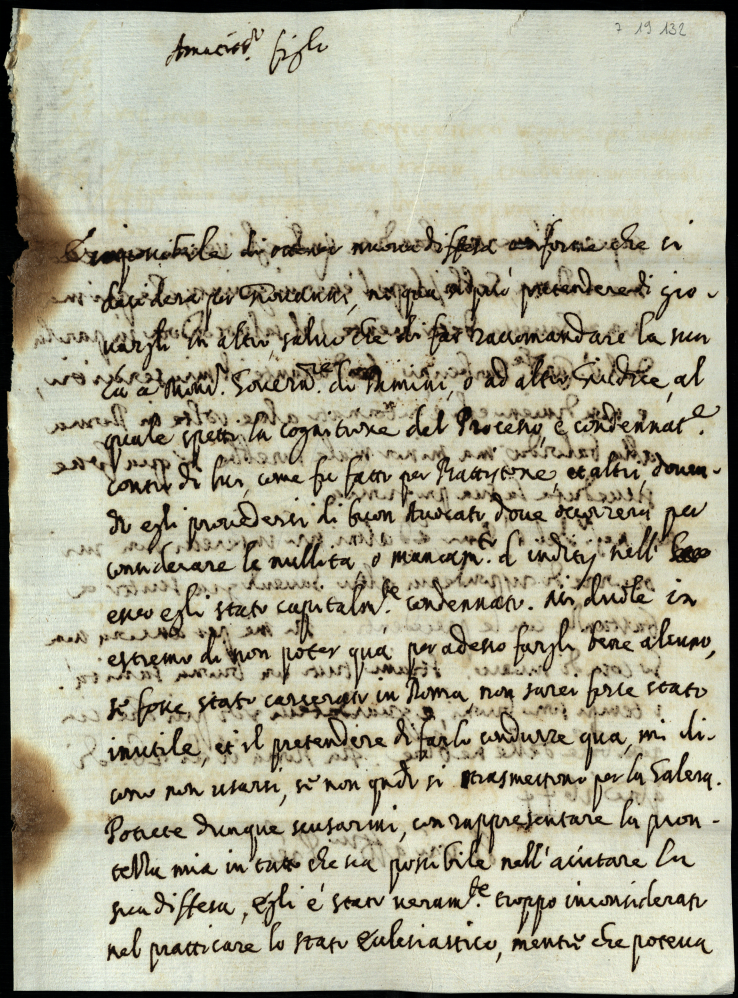 7 19 132
Amatiss.mi figli
È impossibile di ottener nuova diffesa conforme che si
desidera per Giovanni, né qua si può pretendere di gio-
vargli in altro, salvo che di far raccomandare la sua
ca a Mons.r Govern.re di Rimini, o ad altro Giudice, al
quale spetti la cognitione del Processo, e condennat.e
contro di lui, come fu fatto per Battistone, et altri, doven-
do egli provedersi di buon Avocato dove occorrerà per
considerare le nullità, o mancam.to d'inditij nell'
esser egli stato capitalm.te condennato. Mi duole in
estremo di non poter qua per adesso fargli bene alcuno,
se fosse stato carcerato in Roma non sarei forse stato
inutile, et il pretendere di farlo condurre qua, mi di-
cono non usarsi, se non qndo si trasmettono per la Galera.
Potrete dunque scusarmi, con rappresentare la pron-
tezza mia in tutto che sia possibile nell'aiutare la
sua diffesa, Egli è stato veram.te troppo inconsiderato
nel pratticare lo stato Eclesiastico, mentre che poteva